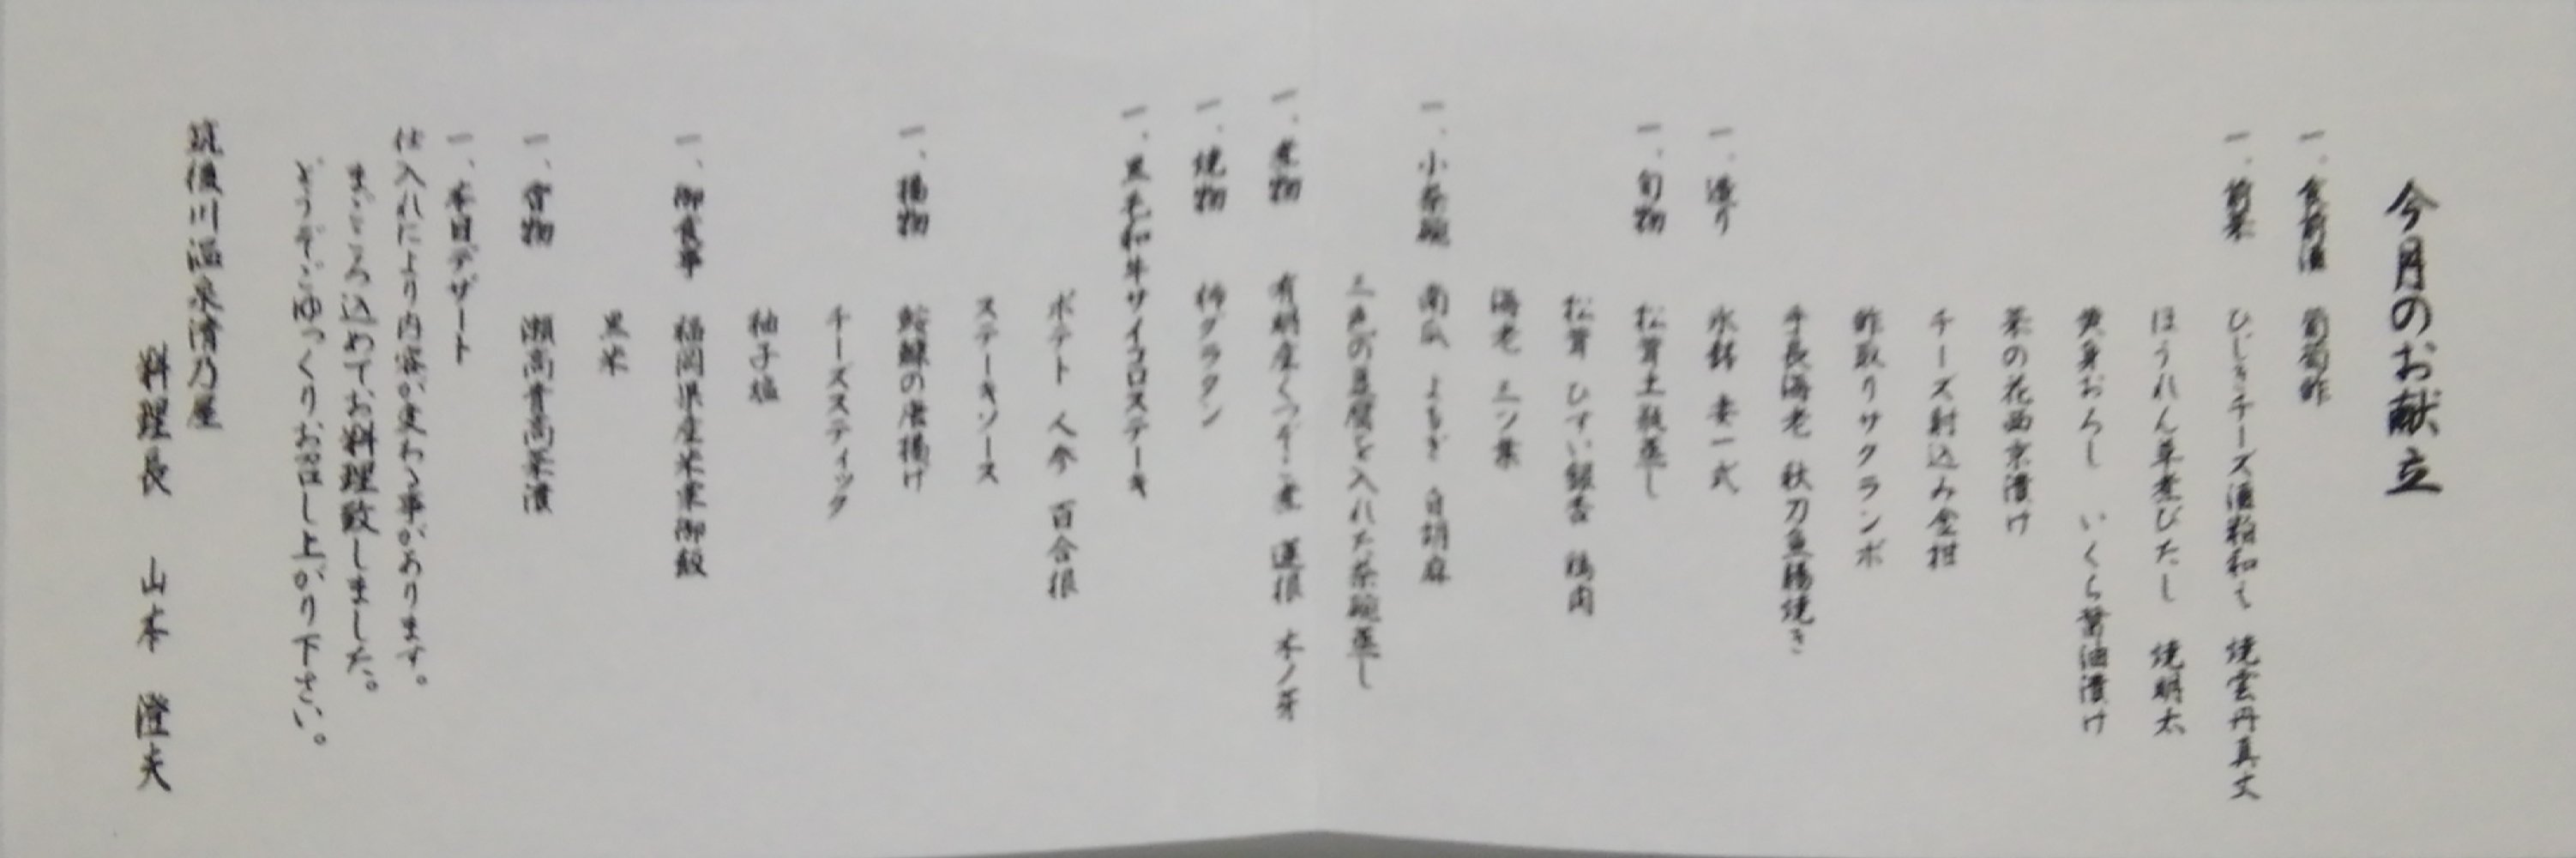 今月のお献立
一、食前酒 葡萄酢
一、前菜 ひじきチーズ酒粕和え 焼雲丹真丈
ほうれん草煮びたし 焼明太
黄身おろし いくら醤油漬け
菜の花西京漬け
チーズ射込み金柑
酢取りサクランボ
手長海老 秋刀魚腸焼き
一、造り 氷鉢 妻一式
一、旬物 松茸土瓶蒸し
松茸 ひすい銀杏 鶏肉
海老 三ツ葉
一、小茶碗 南瓜 よもぎ 白胡麻
三色の豆腐を入れた茶碗蒸し
一、煮物 有明産くつぞこ煮 蓮根 木ノ芽
一、焼物 柿グラタン
一、黒毛和牛サイコロステーキ
ポテト 人参 百合根
ステーキソース
一、揚物 鮟鱇の唐揚げ
チーズスティック
柚子塩
一、御食事 福岡県産米栗御飯
黒米
一、香物 瀬高青高菜漬
一、本日デザート
仕入れにより内容が変わる事があります。
まごころ込めてお料理致しました。
どうぞごゆっくりお召し上がり下さい。
筑後川温泉清乃屋
料理長 山本 澄夫